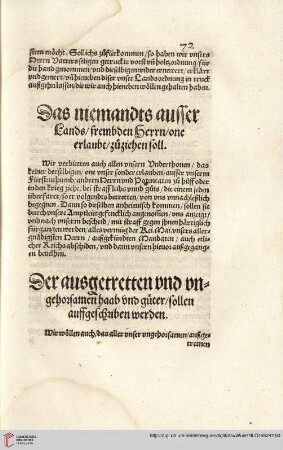 72
sten möcht. Sollichs zůfürkommen / so haben wir vnsers
Herrn Vatters seligen getruckte vorst vnd holtzordnung für
die hand genommen / vnd dieselbigen wider ernewert / erklärt
vnd gemert / vnd hieneben diser vnser Landsordnung in truck
außgehn lassen / die wir auch hieneben wöllen gehalten haben.
Das niemandts ausser
Lands / frembden Herrn / one
erlaubt / zůziehen soll.
Wir verbietten auch allen vnsern Vnderthonen / das
keiner derselbigen / one vnser sonder erlauben / ausser vnserm
Fürstenthumb / andern Herrn vnd Potentaten zů hilff oder
inden krieg ziehe. bei straff leibs vnnd gůts / die einem jeden
überfarer / so er volgends betretten / von vns vnnachleßlich
begegnen. Dann so dieselben anheimisch kommen / sollen sie
durch vnsere Amptleüt gefencklich angenommen / vns anzeigt /
vnd nach vnserm bescheid / mit straff gegen ihnen härtiglich
fürgangen werden / alles vermög der Kei. Mai. vnsers aller-
gnädigsten Herrn / außgekündten Mandaten / auch etlicher
Reichs abschiden / vnd dann vnsern hieuor außgegang-
en beuelhen.
Der ausgetretten vnd vn-
gehorsamen haab vnd güter / sollen
auffgeschriben werden.
Wir wöllen auch / das aller vnser vngehorsamen / außge-
trettnen